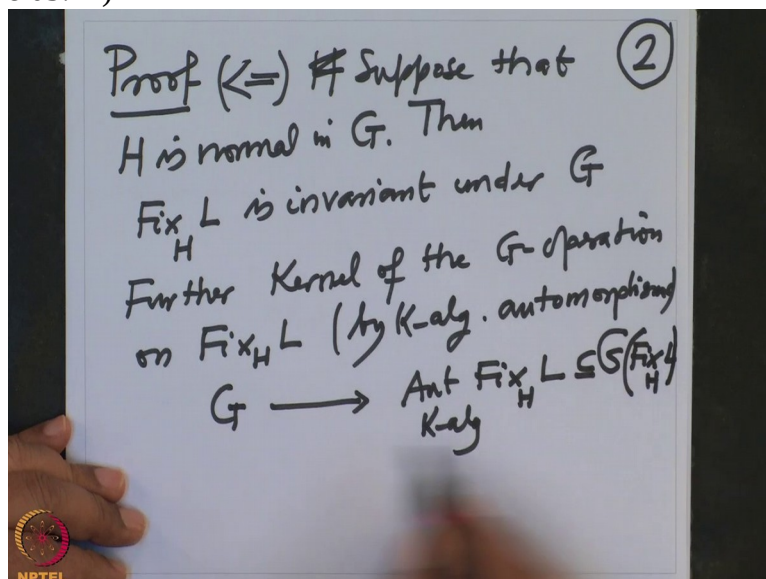 Proof (<=) Suppose that ②
H is normal in G. Then
Fix_H L is invariant under G
Further Kernel of the G-operation
on Fix_H L (by K-alg. automorphisms)
G ⟶ Aut Fix_H L ⊆ G(Fix_H L)
K-alg
NPTEL